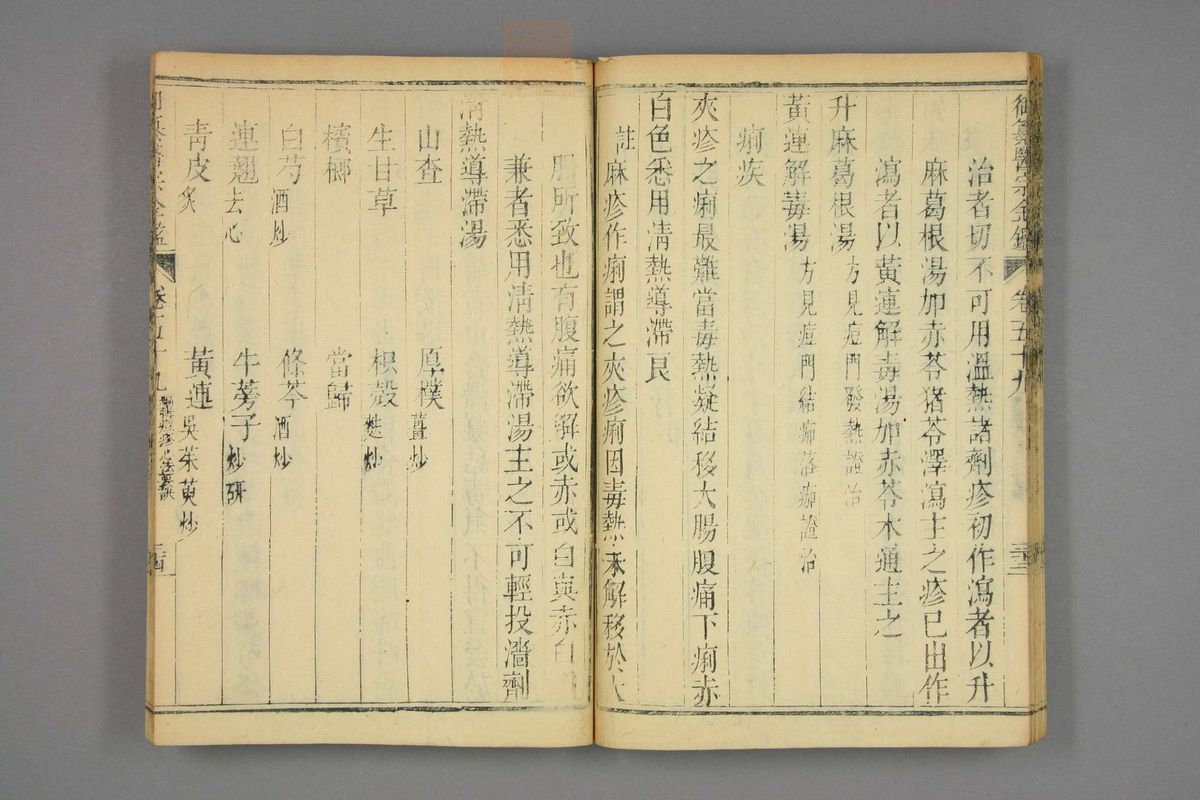 御纂醫宗金鑑 卷五十九 三十三
治者切不可用溫熱諸劑疹初作瀉者以升
麻葛根湯加赤苓猪苓澤瀉主之疹已出作
瀉者以黃連解毒湯加赤苓木通主之
升麻葛根湯 方見痘門發熱證治
黃連解毒湯 方見痘門結痂落痂證治
痢疾
夾疹之痢最難當毒熱凝結移大腸腹痛下痢赤
白色悉用清熱導滯良
註 麻疹作痢謂之夾疹痢因毒熱未解移於大
腸所致也有腹痛欲解或赤或白與赤白
兼者悉用清熱導滯湯主之不可輕投濇劑
清熱導滯湯
山查 厚樸薑炒
生甘草 枳殼麩炒
檳榔 當歸
白芍酒炒 條芩酒炒
連翹去心 牛蒡子炒研
青皮炙 黃連吳茱萸炒
御纂醫宗金鑑 卷五十九